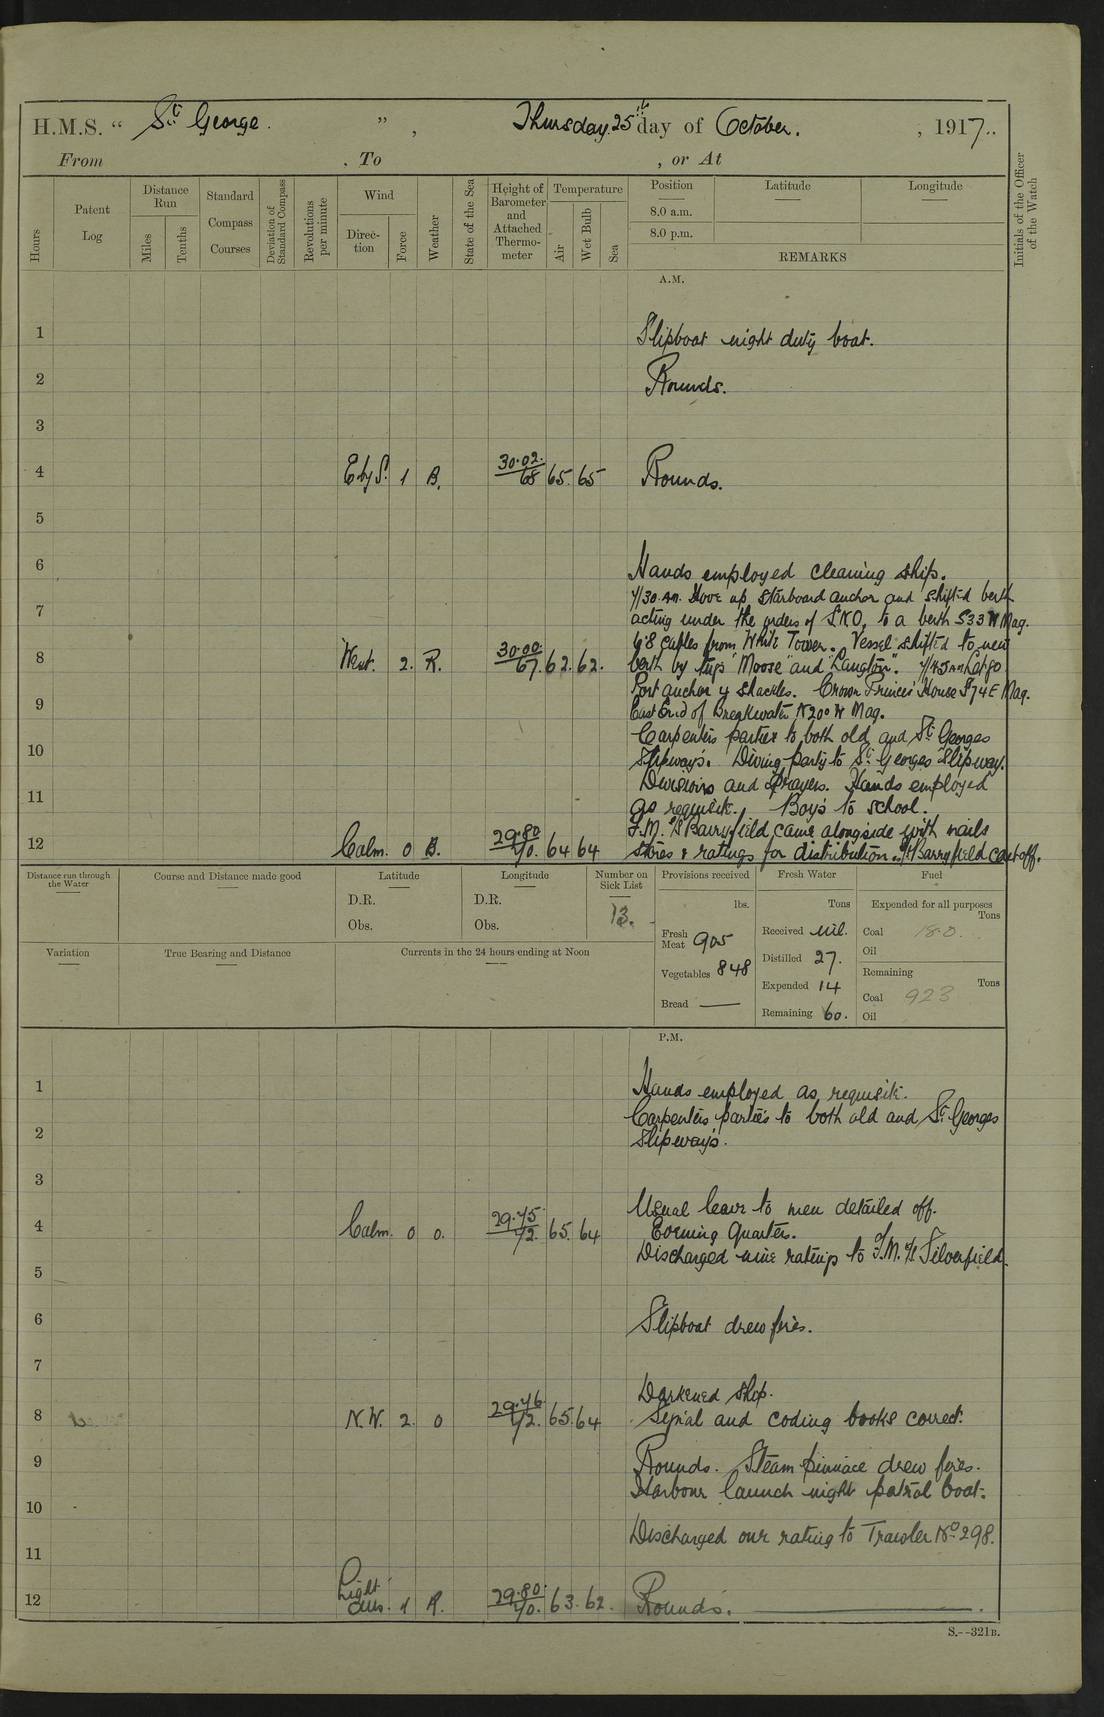 H.M.S. " St George. ", Thursday 25th day of October. , 1917..
From , To , or At
Hours
Patent Log
Distance Run
Miles
Tenths
Standard Compass Courses
Deviation of Standard Compass
Revolutions per minute
Wind
Direction
Force
Weather
State of the Sea
Height of Barometer and Attached Thermometer
Temperature
Air
Wet Bulb
Sea
Position
8.0 a.m.
8.0 p.m.
Latitude
Longitude
REMARKS
Initials of the Officer of the Watch
A.M.
1 Slipboat night duty boat.
2 Rounds.
3
4 E by S. 1 B. 30.02. 68 65. 65 Rounds.
5
6 Hands employed cleaning ship.
7/30 AM. Hove up starboard anchor and shifted berth
7 acting under the orders of S.N.O. to a berth S33 W Mag.
6'8 cables from White Tower. Vessel shifted to new
8 West. 2. R. 30.00. 67. 62. 62. berth by tugs "Moose" and "Langton". 7/45 AM Let go
Port anchor 4 shackles. Crown Princes House S74E Mag.
9 East End of Breakwater N20° W Mag.
Carpenters parties to both old and St Georges
10 Slipways. Diving party to St Georges Slipway.
Divisions and Prayers. Hands employed
11 as requisite. Boys to school.
F.M. S/S Barryfield came alongside with mails
12 Calm. 0 B. 29.80 70. 64 64 stores & ratings for distribution. S/S Barryfield cast off.
Distance run through the Water
Course and Distance made good
Latitude
D.R.
Obs.
Longitude
D.R.
Obs.
Number on Sick List
13.
Provisions received
lbs.
Fresh Meat 905
Vegetables 848
Bread —
Fresh Water
Tons
Received Nil.
Distilled 27.
Expended 14
Remaining 60.
Fuel
Expended for all purposes
Tons
Coal 180.
Oil
Remaining
Tons
Coal 923
Oil
Variation
True Bearing and Distance
Currents in the 24 hours ending at Noon
P.M.
1 Hands employed as requisite.
Carpenters parties to both old and St Georges
2 Slipways.
3
Usual leave to men detailed off.
4 Calm. 0 0. 29.75 72. 65. 64 Evening Quarters.
Discharged nine ratings to F.M. S/S Silverfield.
5
6 Slipboat drew fires.
7
Darkened ship.
8 N.W. 2. 0 29.76 72. 65. 64 Signal and coding books correct.
9 Rounds. Steam pinnace drew fires.
Harbour launch night patrol boat.
10
Discharged one rating to Trawler No 298.
11
12 Light airs. 1 R. 29.80. 70. 63. 62. Rounds.
S.--321B.